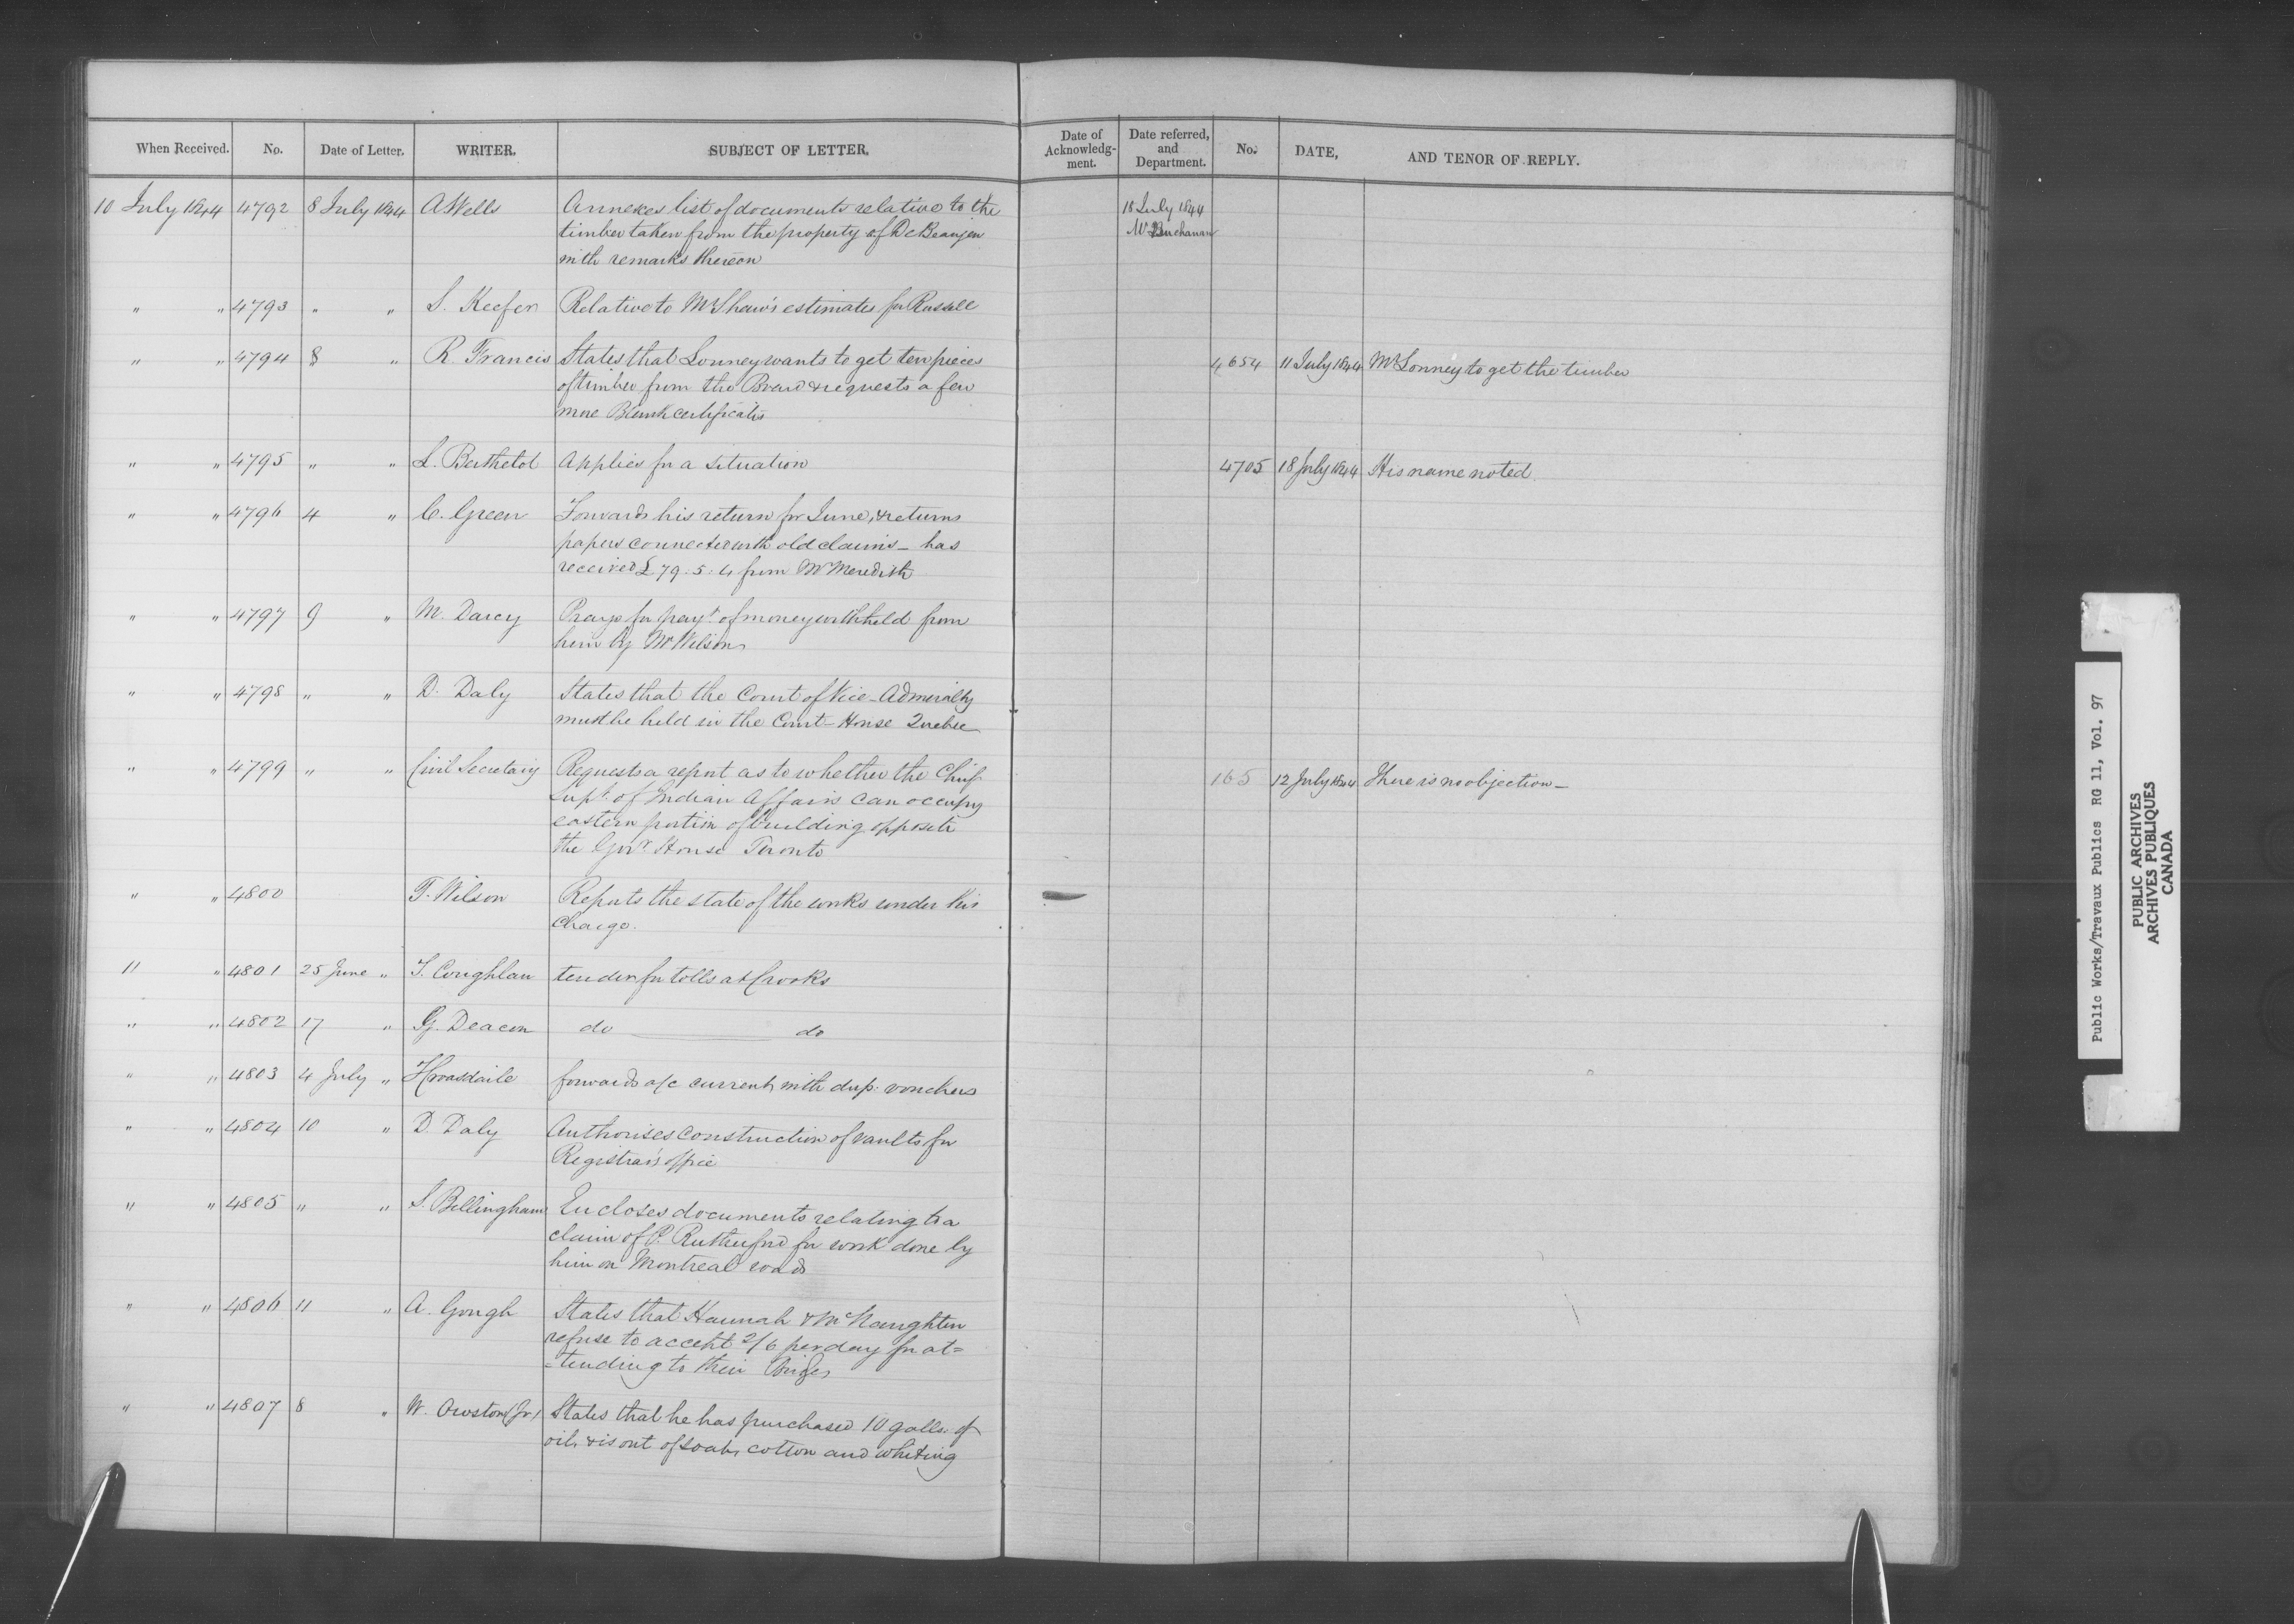 When Received. No. Date of Letter. WRITER. SUBJECT OF LETTER. Date of Acknowledg-ment. Date referred, and Department. No. DATE, AND TENOR OF REPLY.
10 July 1844 4792 8 July 1844 A Wells Annexes list of documents relative to the 18 July 1844
timber taken from the property of De Beaujeu Mr Buchanan
with remarks thereon
" " 4793 " " S. Keefer Relative to Mr Shaw's estimates for Russell
" " 4794 8 " R. Francis States that Lonney wants to get ten pieces 4654 11 July 1844 Mr Lonney to get the timber
of timber from the Board & requests a few
more Blank certificates
" " 4795 " " L. Berthelot Applies for a situation 4705 18 July 1844 His name noted.
" " 4796 4 " C. Green Forwards his return for June, & returns
papers connected with old claims - has
received £79.5.4 from Mr Meredith
" " 4797 9 " M. Darcy Prays for payt. of money withheld from
him by Mr Wilson
" " 4798 " " D. Daly States that the Court of Vice-Admiralty
must be held in the Court-House Quebec
" " 4799 " " Civil Secretary Requests a report as to whether the Chief 165 12 July 1844 There is no objection -
Supt. of Indian Affairs can occupy
eastern portion of building opposite
the Govr. House Toronto
" " 4800 T. Wilson Reports the state of the works under his
charge.
11 " 4801 25 June " T. Coughlan tender for tolls at Crooks
" " 4802 17 " G. Deacon do ——— do
" " 4803 4 July " forwards a/c current with dup: vouchers
" " 4804 10 " D. Daly Authorises construction of vaults for
Registrar's office
" " 4805 " " S. Bellingham Encloses documents relating to a
claim of P. Rutherford for work done by
him on Montreal roads
" " 4806 11 " A. Gough States that Hannah & McNaughten
refuse to accept 2/6 per day for at=
=tending to their Bridges
" " 4807 8 " W. Owston (Jr) States that he has purchased 10 galls: of
oil, & is out of soap, cotton and whiting
Public Works/Travaux Publics RG 11, Vol. 97
PUBLIC ARCHIVES
ARCHIVES PUBLIQUES
CANADA